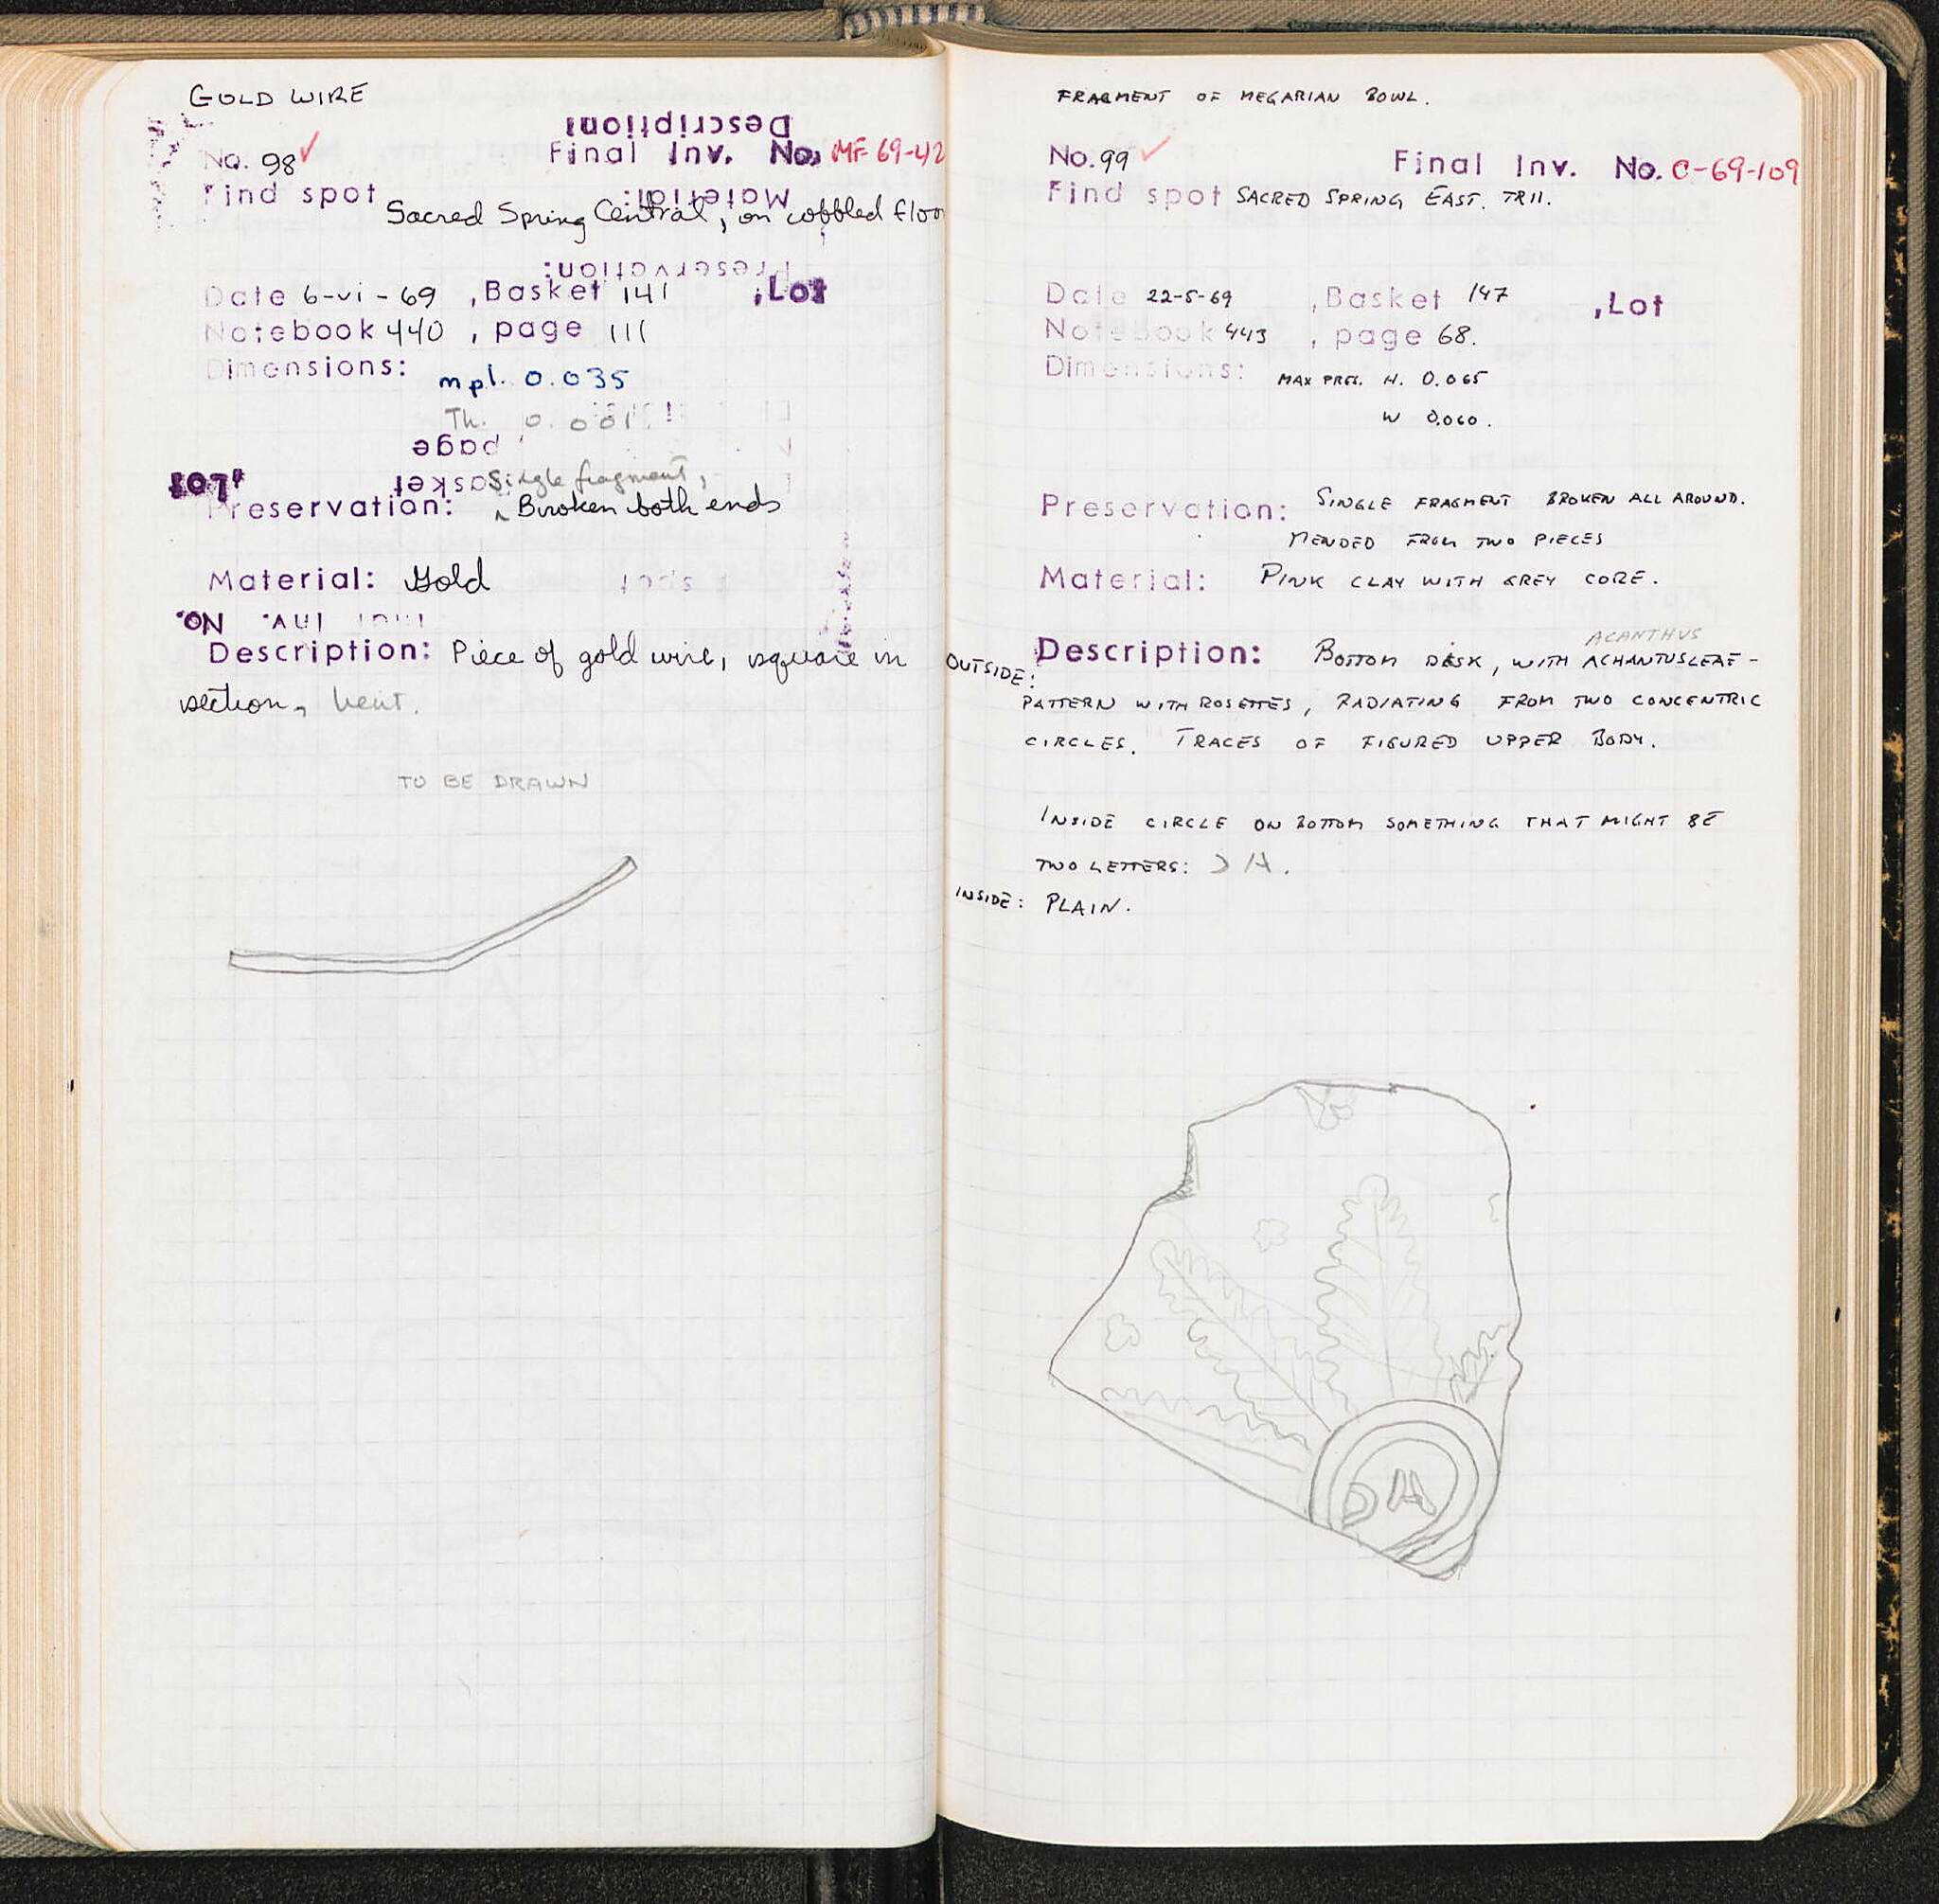 GOLD WIRE
Description:
No. 98✓ Final Inv. No. MF 69-42
Material:
Find spot Sacred Spring Central, on cobbled floor
Preservation:
Date 6-vi-69 , Basket 141 , Lot
Notebook 440 , page 111
Dimensions: mpl. 0.035
Th. 0.001
, page
, Lot Basket Single fragment,
Preservation: ^ Broken both ends
Material: Gold spot
Inv. No.
Description: Piece of gold wire, square in
section, bent.
TO BE DRAWN
FRAGMENT OF MEGARIAN BOWL.
No. 99 ✓ Final Inv. No. C-69-109
Find spot SACRED SPRING EAST. TR II.
Date 22-5-69 , Basket 147 , Lot
Notebook 443 , page 68.
Dimensions: MAX PRES. H. 0.065
W 0.060.
Preservation: SINGLE FRAGMENT BROKEN ALL AROUND.
MENDED FROM TWO PIECES
Material: PINK CLAY WITH GREY CORE.
ACANTHUS
OUTSIDE: Description: BOTTOM DISK, WITH ACHANTUSLEAF-
PATTERN WITH ROSETTES, RADIATING FROM TWO CONCENTRIC
CIRCLES. TRACES OF FIGURED UPPER BODY.
INSIDE CIRCLE ON BOTTOM SOMETHING THAT MIGHT BE
TWO LETTERS: Ͻ A.
INSIDE: PLAIN.